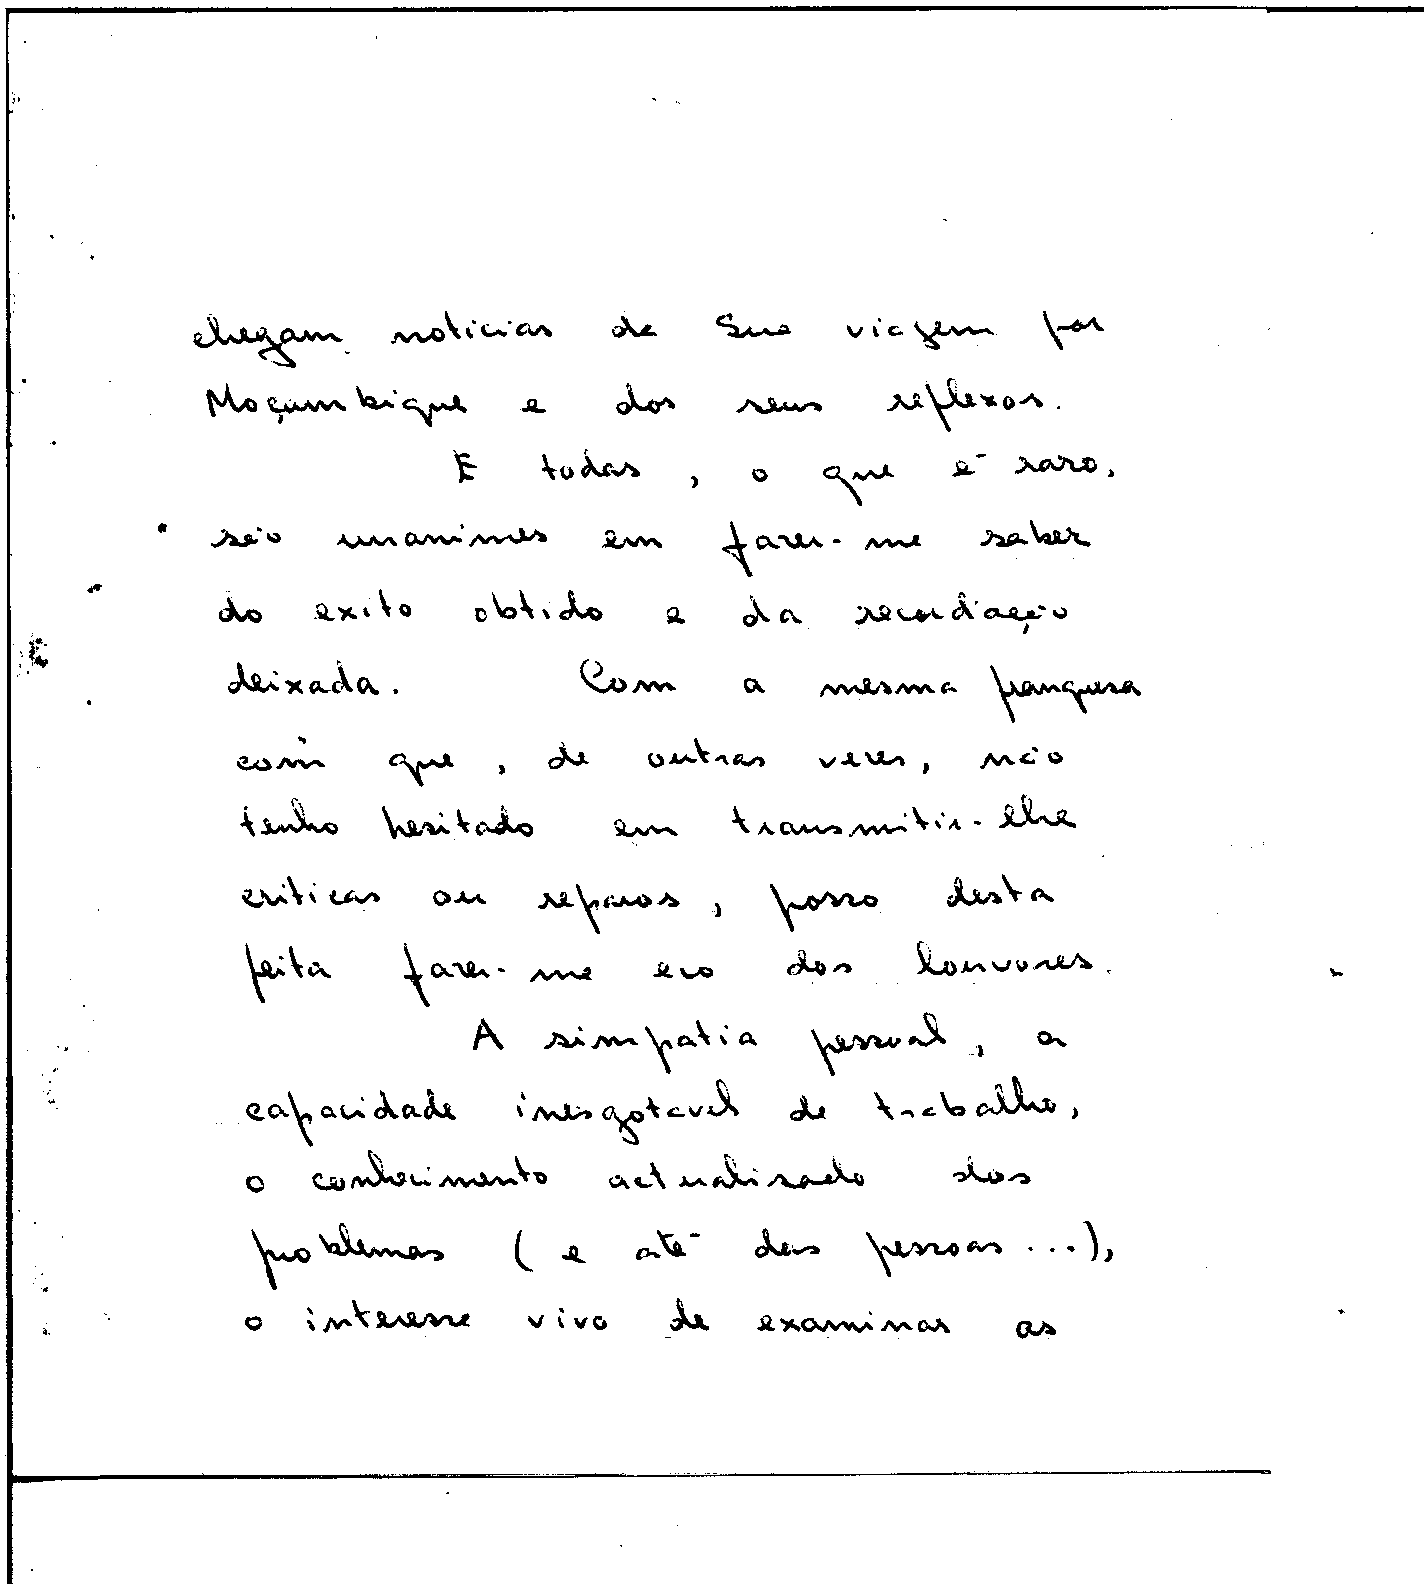 chegam noticias da Sua viagem por
Moçambique e dos seus reflexos.
E todas, o que é raro,
são unanimes em fazer-me saber
do exito obtido e da recordação
deixada. Com a mesma franquesa
com que, de outras vezes, não
tenho hesitado em transmitir-lhe
criticas ou reparos, posso desta
feita fazer-me eco dos louvores.
A simpatia pessoal, a
capacidade inesgotavel de trabalho,
o conhecimento actualizado dos
problemas (e até das pessoas...),
o interesse vivo de examinar as